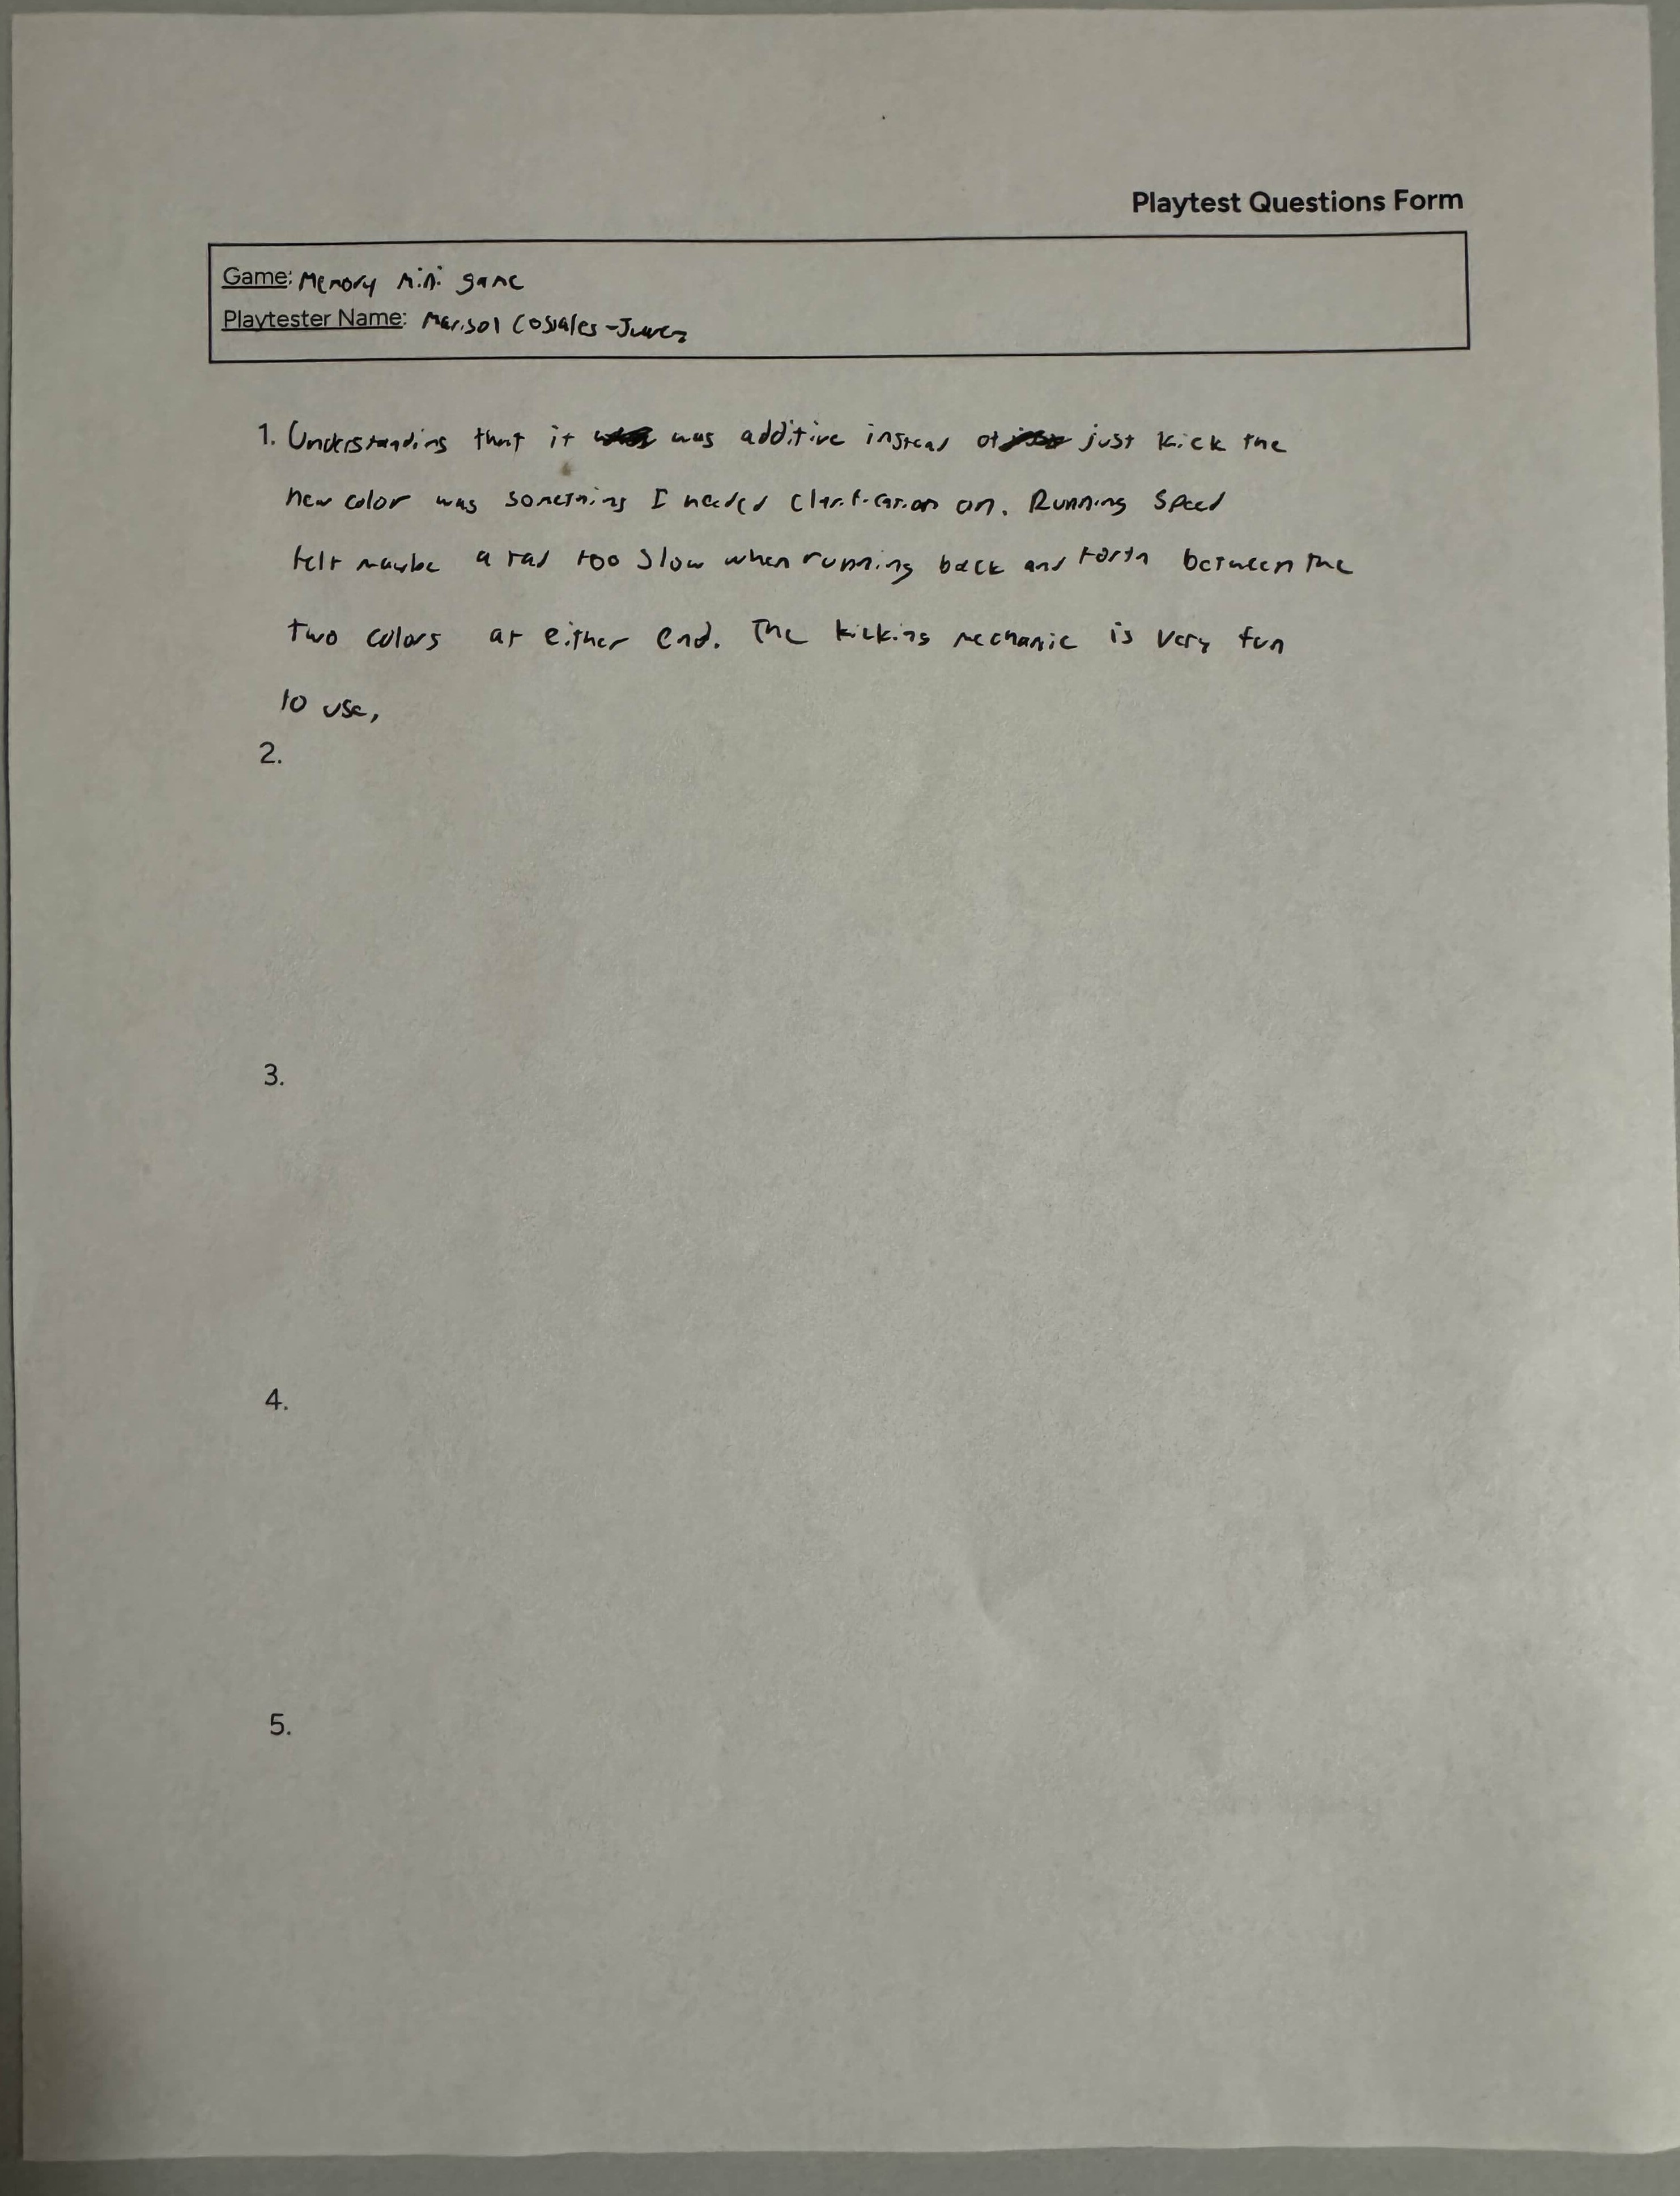 Playtest Questions Form
Game: Memory mini game
Playtester Name: Marisol
1. Understanding that it was additive instead of just kick the
new color was something I needed clarification on. Running speed
felt maybe a tad too slow when running back and forth between the
two colors at either end. The kicking mechanic is very fun
to use,
2.
3.
4.
5.